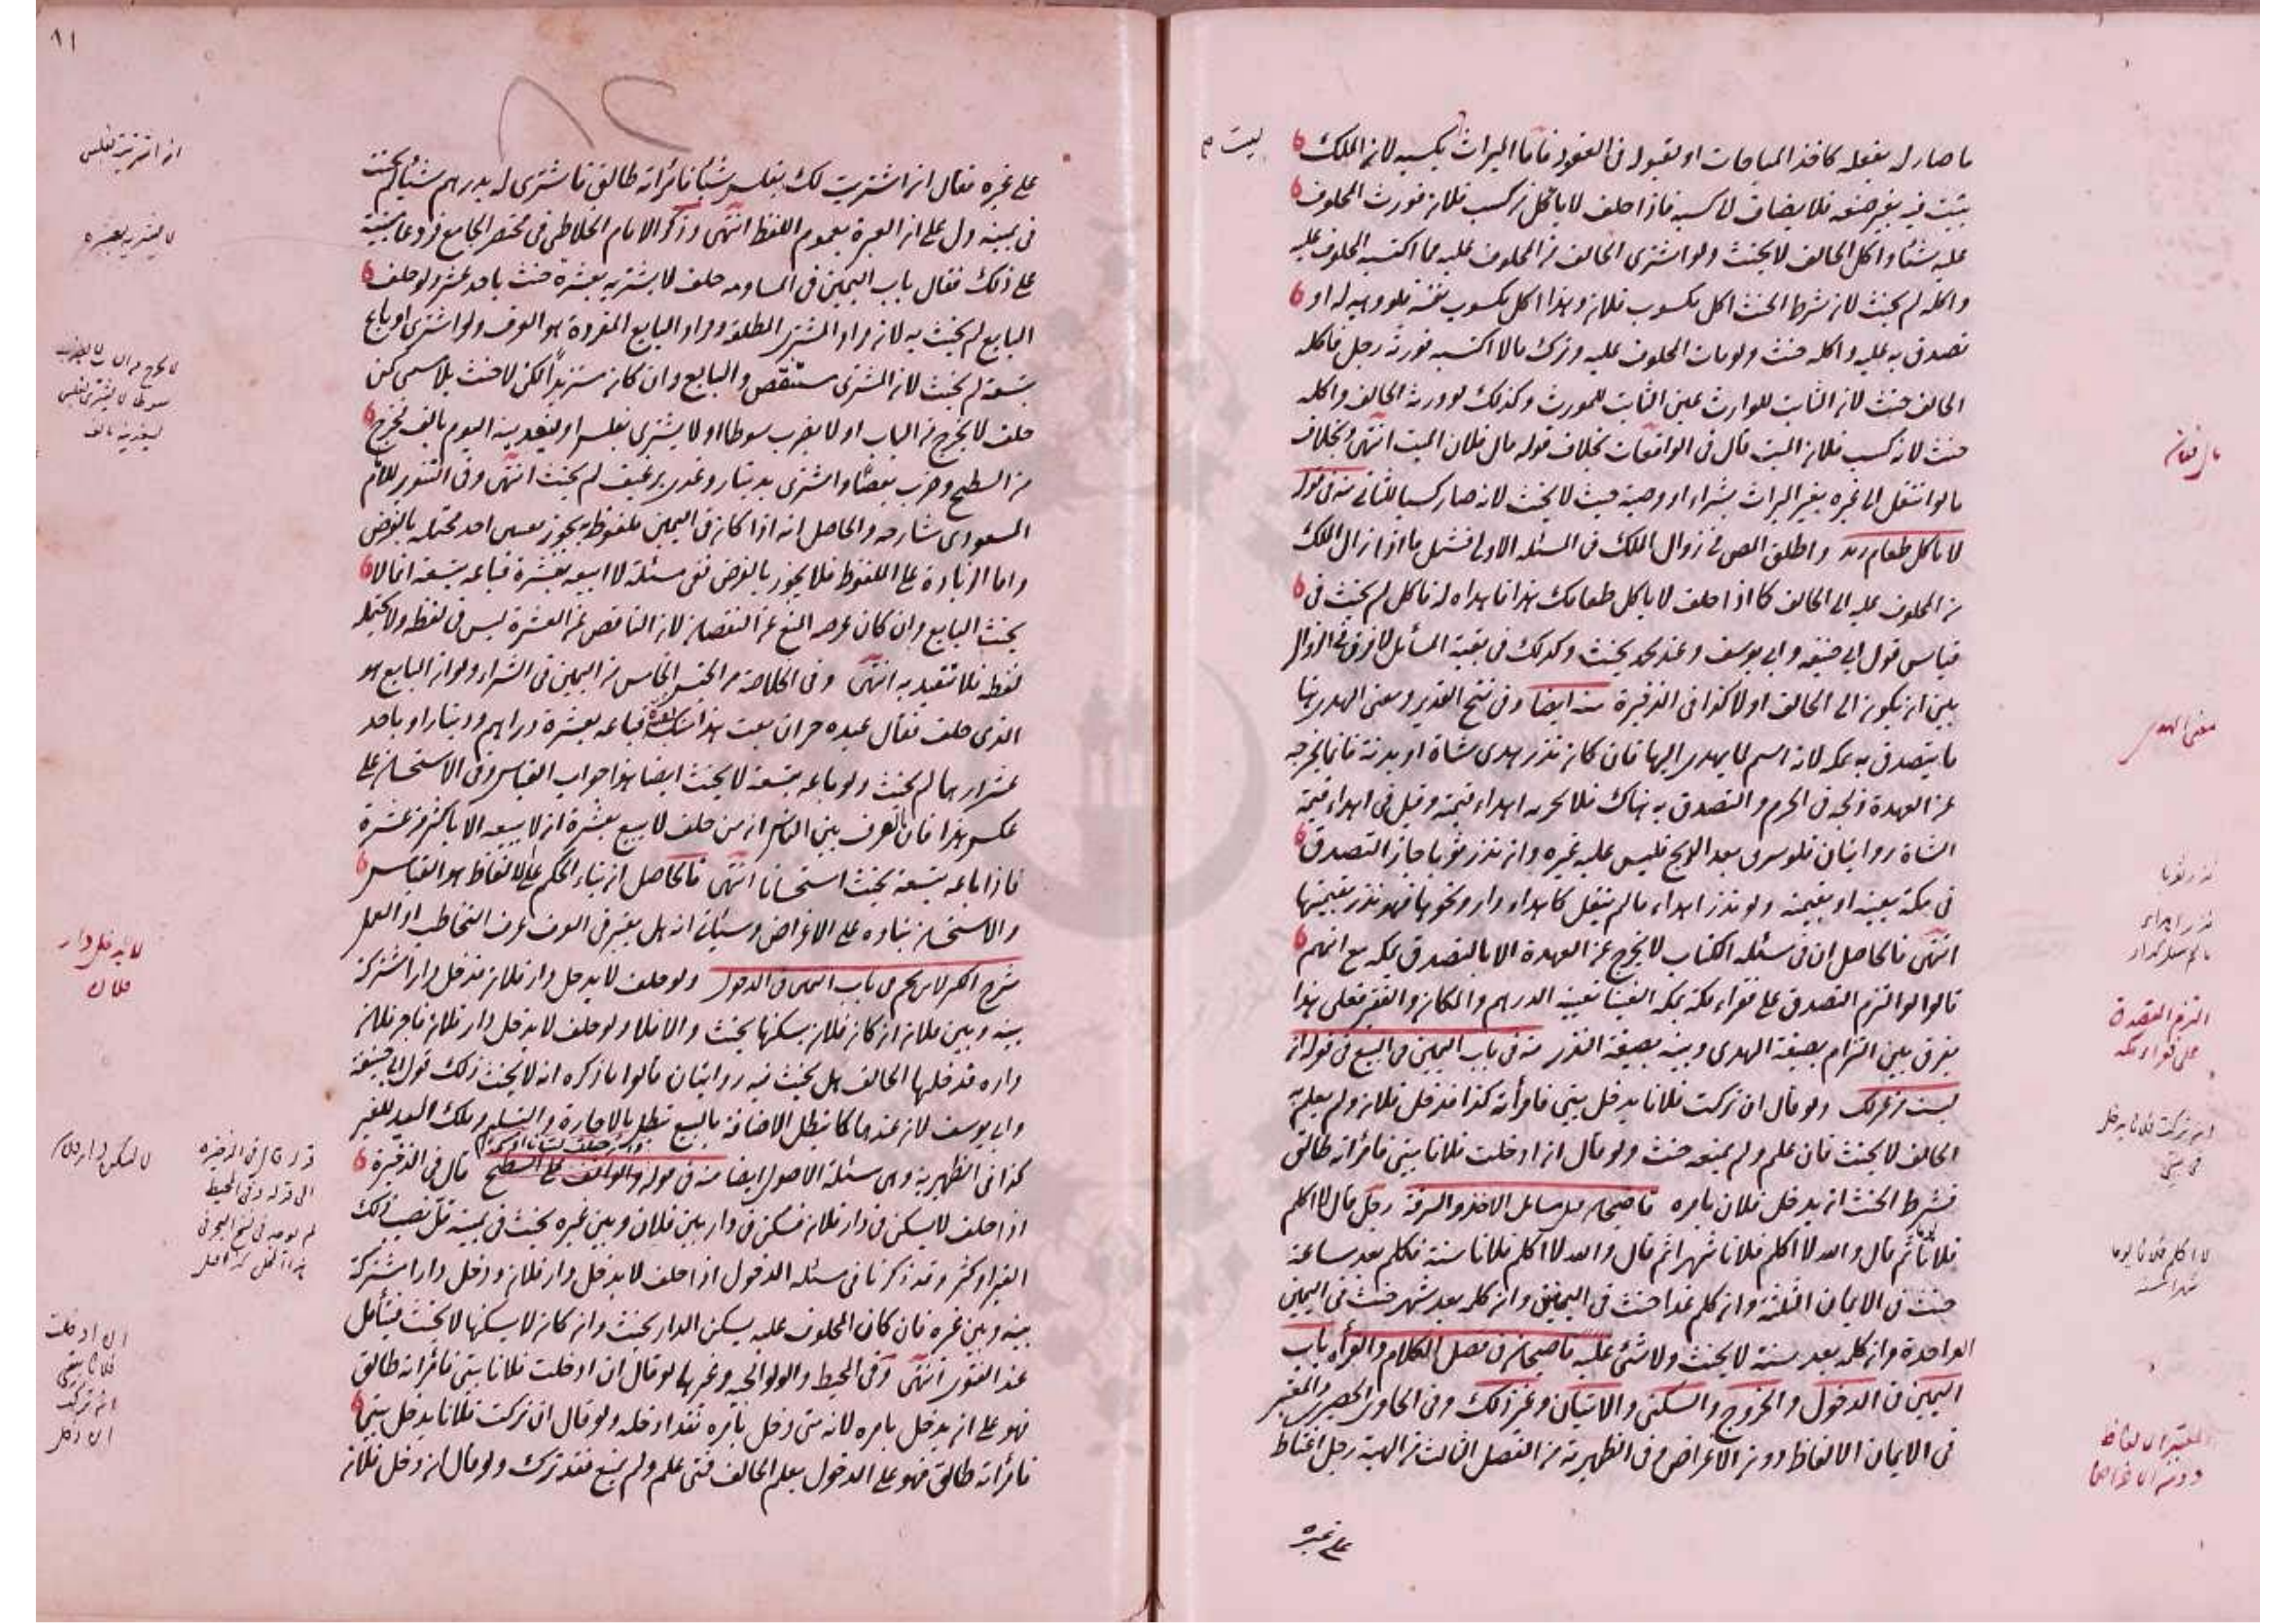 ما صار له بفعله كاخذ المباحات او بقبوله فى العقود فاما الميراث بكسبه لانه الملك
يثبت فيه بغير صنعه فلا يضاف لا كسبه فاذا حلف لا يأكل من كسب فلان فورث المحلوف
عليه شيئا واكل الحالف لا يحنث ولو اشترى الحالف من المحلوف عليه مما اكتسبه المحلوف عليه
واكله لم يحنث لان شرط الحنث اكل مكسوب فلان وهذا اكل مكسوب نفسه فلو وهبه له او
تصدق به عليه واكله حنث ولو مات المحلوف عليه وترك مالا اكتسبه فورثه رجل فاكله
الحالف حنث لان الثابت للوارث عين الثابت للمورث وكذلك لو ورثه الحالف واكله
حنث لانه كسب فلان الميت قال فى الواقعات بخلاف قوله مال فلان الميت انتهى بخلاف
ما لو انتقل الى غيره بغير الميراث بشراء او وصية حيث لا يحنث لانه صار كسبا للثانى منه فى قوله
لا يأكل طعام زيد واطلق المص فى زوال الملك فى المسئلة الاولى فشمل ما اذا زال الملك
من المحلوف عليه الى الحالف كما اذا حلف لا يأكل طعامك هذا فاهداه له فاكل لم يحنث فى
قياس قول ابى حنيفه وابى يوسف وعند محمد يحنث وكذلك فى بقية المسائل لا فرق فى الزوال
بين ان يكون الى الحالف اولا كذا فى الذخيرة منه ايضا وفى فتح القدير ومعنى الهدى هنا
ما يتصدق به بمكه لانه اسم لما يهدى اليها فان كان نذر هدى شاة او بدنة فانما يخرجه
عن العهدة ذبحه فى الحرم والتصدق به هناك فلا يجزيه اهداء قيمته وقيل فى اهداء قيمة
الشاة روايتان فلو سرق بعد الذبح فليس عليه غيره وان نذر ثوبا جاز التصدق
فى مكة بعينه او بقيمته ولو نذر اهداء ما لم ينقل كاهداء دار ونحوها فهو نذر بقيمتها
انتهى فالحاصل ان فى مسئلة الكتاب لا يخرج عن العهدة الا بالتصدق بمكه مع انهم
قالوا لو التزم التصدق على فقراء مكة بمكه الغينا تعيينه الدرهم والمكان والفقير فعلى هذا
يفرق بين التزام بصيغة الهدى وبينه بصيغة النذر منه فى باب اليمين فى البيع فى قوله ان
لبست من غزلك ولو قال ان تركت فلانا يدخل بيتى فامرأته كذا فدخل فلان ولم يعلم به
الحالف لا يحنث فان علم ولم يمنعه حنث ولو قال ان ادخلت فلانا بيتى فامرأته طالق
فشرط الحنث ان يدخل فلان بامره قاضيخان قبل مسائل الاخذ والسرقة رجل قال لا اكلم
فلانا يوما ثم قال والله لا اكلم فلانا شهرا ثم قال والله لا اكلم فلانا سنة فكلمه بعد ساعة
حنث فى الايمان الثلثة وان كلمه غدا حنث فى اليمينين وان كلمه بعد شهر حنث فى اليمين
الواحدة وان كلمه بعد سنة لا يحنث ولا شئ عليه قاضيخان فى فصل الكلام والقرأه باب
اليمين فى الدخول والخروج والسكنى والاتيان وغير ذلك وفى الحاوى الحصيرى والمعتبر
فى الايمان الالفاظ دون الاغراض وفى الظهيرية من الفصل الثالث من الهبة رجل اغتاظ
على غيره
ليست
مال فلان
معنى الهدى
نذر ثوبا
نذر اهداء
التزم التصدق
على فقراء مكه
ان تركت فلانا يدخل
فى بيتى
لا اكلم فلانا يوما
شهرا سنة
المعتبر الالفاظ
دون الاغراض
٨١
على غيره فقال ان اشتريت لك بفلس شيئا فامرأته طالق فاشترى له بدرهم شيئا لم يحنث
فى يمينه دل على ان العبرة بعموم اللفظ انتهى وذكر الامام الخلاطى فى مختصر الجامع فروعا مبنية
على ذلك فقال باب اليمين فى المساومة حلف لا يشتريه بعشرة حنث باحد عشر ولو حلف
البايع لم يحنث به لان مراد المشترى المطلقة ومراد البايع المفردة هو العرف ولو اشترى او باع
بتسعة لم يحنث لان المشترى مستنقص والبايع وان كان مستزيدا لكن لا حنث بلا مسمى كمن
حلف لا يخرج من الباب او لا يضرب سوطا او لا يشترى بفلس او ليغدينه اليوم بالف فخرج
من السطح وضرب بعصا واشترى بدينار وغدى برغيف لم يحنث انتهى وفى التنوير للامام
المسعودى شارحه والحاصل انه اذا كان فى اليمين ملفوظ به يجوز تعيين احد محتمليه بالغرض
واما الزيادة على الملفوظ فلا يجوز بالغرض ففى مسئلة لا ابيعه بعشرة فباعه بتسعة انما لا
يحنث البايع وان كان غرضه المنع عن النقصان لان الناقص عن العشرة ليس فى لفظه ولا يحتمله
لفظه فلا تتقيد به انتهى وفى الخلاصة من الجنس الخامس من اليمين فى الشراء ولو ان البايع هو
الذى حلف فقال عبده حر ان بعت هذا منك بعشرة فباعه بعشرة دراهم ودينارا وباحد
عشر درهما لم يحنث ولو باعه بتسعة لا يحنث ايضا هذا جواب القياس وفى الاستحسان على
عكس هذا فان العرف بين الناس ان من حلف لا يبيع بعشرة ان لا يبيعه الا باكثر من عشرة
فاذا باعه بتسعة يحنث استحسانا انتهى فالحاصل ان بناء الحكم على الالفاظ هو القياس
والاستحسان بناؤه على الاغراض وسيأتى انه هل يعتبر فى العرف عرف التخاطب او العمل
شرح الكنز لابن نجيم من باب اليمين فى الدخول ولو حلف لا يدخل دار فلان فدخل دارا مشتركة
بينه وبين فلان ان كان فلان يسكنها يحنث والا فلا ولو حلف لا يدخل دار فلان فاجر فلان
داره فدخلها الحالف هل يحنث فيه روايتان قالوا ما ذكره انه لا يحنث ذلك قول ابى حنيفة
وابى يوسف لان عندهما كما تبطل الاضافة بالبيع تبطل بالاجارة والتسليم وملك اليد للغير
كذا فى الظهيرية وهى مسئلة الاصول ايضا منه فى قوله والواقف على السطح قال فى الذخيرة
اذا حلف لا يسكن فى دار فلان فسكن فى دار بين فلان وبين غيره يحنث فى يمينه قل نصيب ذلك
الغير او كثر وقد ذكرنا فى مسئلة الدخول اذا حلف لا يدخل دار فلان ودخل دارا مشتركة
بينه وبين غيره فان كان المحلوف عليه يسكن الدار يحنث وان كان لا يسكنها لا يحنث فيتأمل
عند الفتوى انتهى وفى المحيط والولوالجيه وغيرها لو قال ان ادخلت فلانا بيتى فامرأته طالق
فهو على ان يدخل بامره لانه متى دخل بامره فقد ادخله ولو قال ان تركت فلانا يدخل بيتى
فامرأته طالق فهو على الدخول بعلم الحالف فمتى علم ولم يمنع فقد ترك ولو قال ان دخل فلان
ان اشتريت بفلس
لا يشتريه بعشره
لا يخرج من الباب لا يضرب
سوطا لا يشترى بفلس
ليغدينه بالف
لا يدخل دار
فلان
لا يسكن دار فلان
قوله قال فى الذخيره
الى قوله وفى المحيط
ان ادخلت
فلانا بيتى
ان تركت
ان دخل